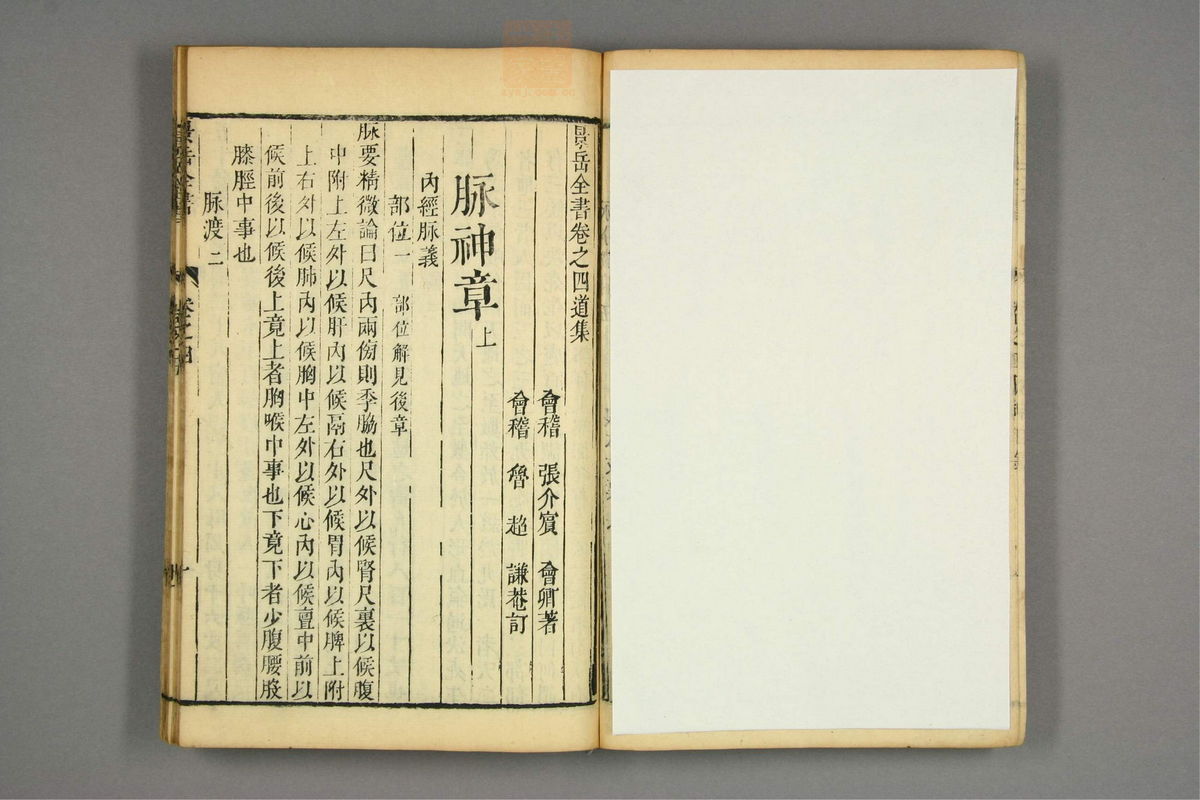 景岳全書卷之四道集
會稽 張介賓 會卿著
會稽 魯超 謙菴訂
脉神章上
內經脉義
部位一 部位解見後章
脉要精微論曰尺內兩傍則季脇也尺外以候腎尺裏以候腹
中附上左外以候肝內以候鬲右外以候胃內以候脾上附
上右外以候肺內以候胸中左外以候心內以候亶中前以
候前後以候後上竟上者胸喉中事也下竟下者少腹腰股
膝脛中事也
脉渡二
景岳全書
卷之四